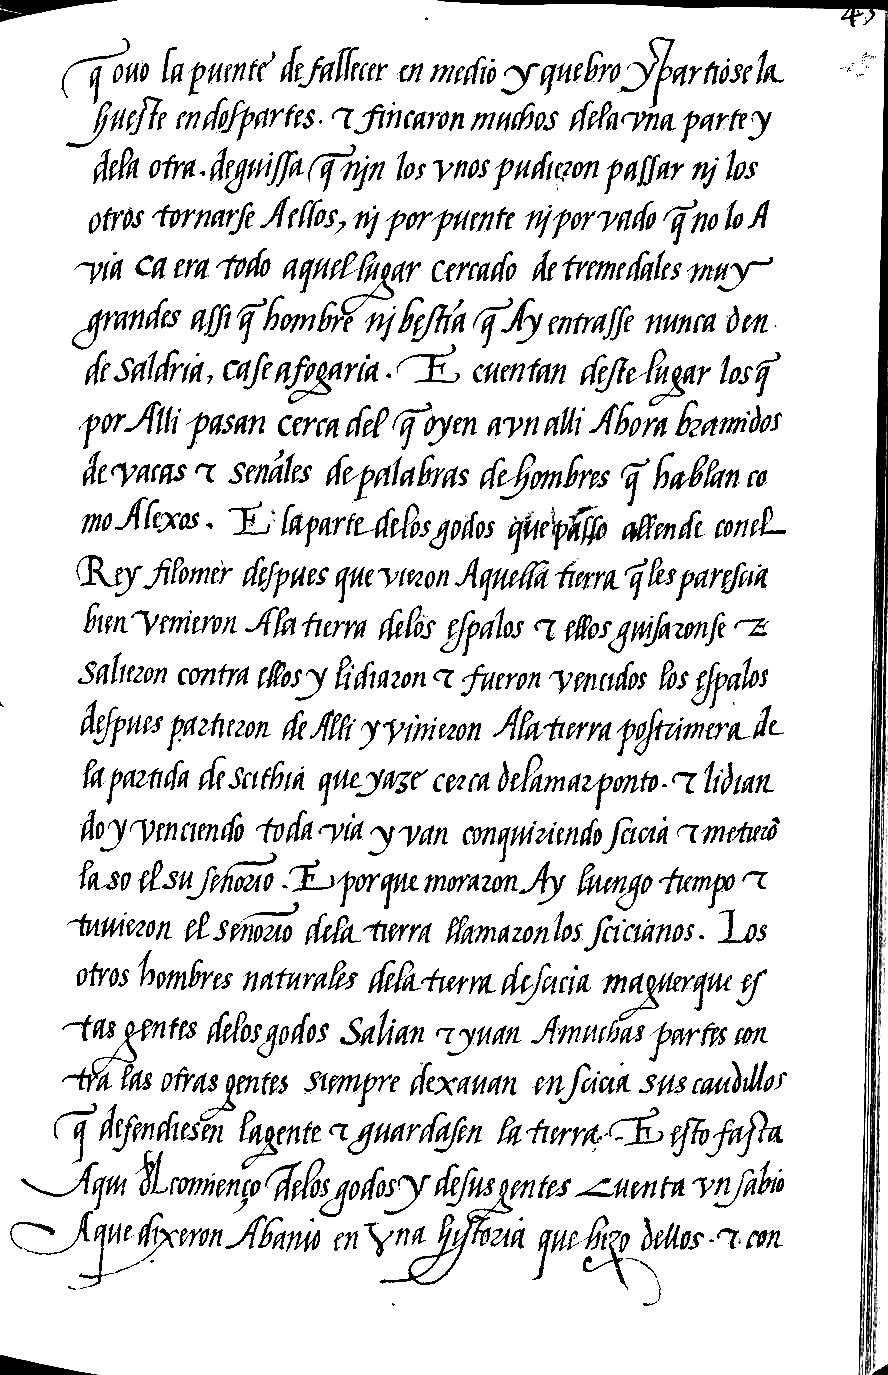 45
q̃ ouo la puente de fallecer en medio y quebro y partiose la
hueste en dos partes. τ fincaron muchos dela vna parte y
dela otra. deguissa q̃ nin los vnos pudieron passar nj los
otros tornarse Aellos, nj por puente nj por vado q̃ no lo A
via ca era todo aquel lugar cercado de tremedales muy
grandes assi q̃ hombre nj bestia q̃ Ay entrasse nunca den
de saldria, ca se afogaria. E cuentan deste lugar los q̃
por Alli pasan cerca del q̃ oyen avn alli Ahora bramidos
de vacas τ señales de palabras de hombres q̃ hablan co
mo Alexos. E la parte delos godos que passo allende conel
Rey filomer despues que vieron Aquella tierra q̃ les parescia
bien Venieron Ala tierra delos espalos τ ellos guisaronse τ
salieron contra ellos y lidiaron τ fueron vencidos los espalos
despues partieron de Alli y vinieron Ala tierra postrimera de
la partida de scithia que yaze cerca dela mar ponto. τ lidian
do y venciendo toda via y van conquiriendo scicia τ metierõ
la so el su señorio. E porque moraron Ay luengo tiempo τ
tuuieron el señorio dela tierra llamaron los scicianos. Los
otros hombres naturales dela tierra de scicia maguerque es
tas gentes delos godos Salian τ yuan Amuchas partes con
tra las otras gentes siempre dexauan en scicia sus caudillos
q̃ defendiesen lagente τ guardasen la tierra. E esto fasta
Aqui dl comienço delos godos y desus gentes Cuenta vn sabio
Aque dixeron Abanio en Vna historia que hizo dellos. τ con